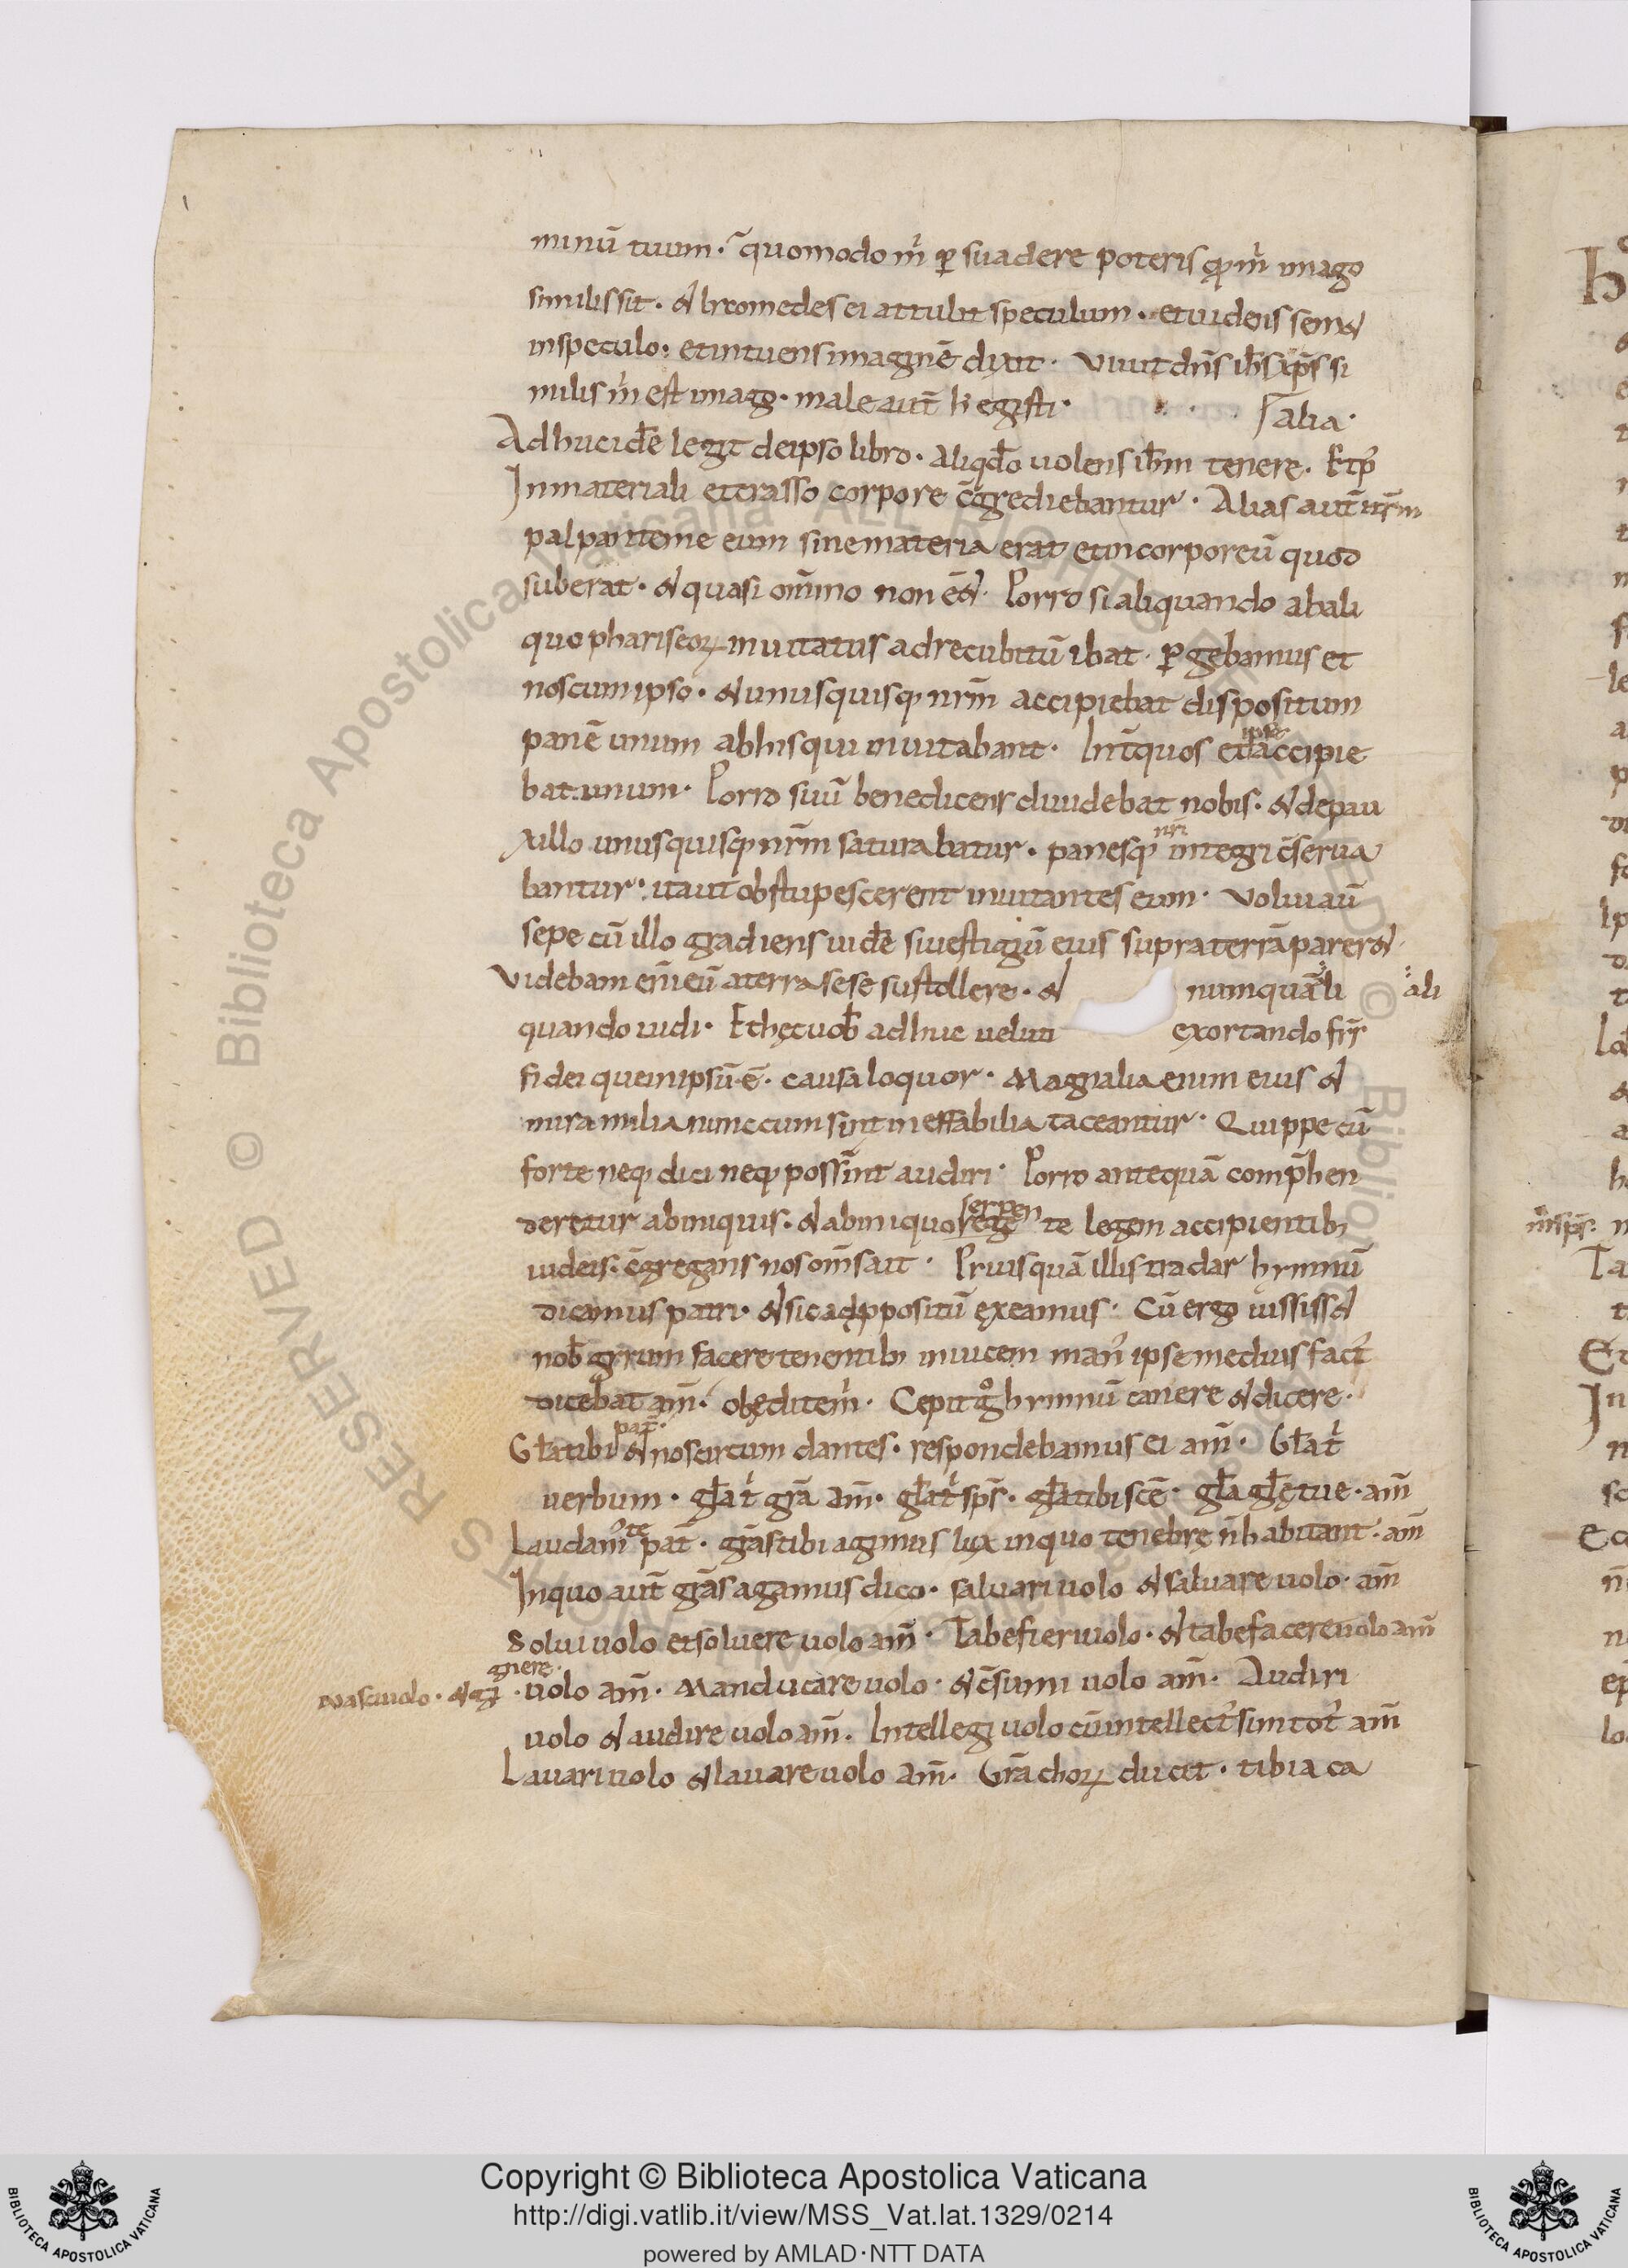 minū tuum · quomodo m̄ ꝑ suadere poteris qđ m̄ imago
similis sit · & lycomedes ei attulit speculum · et uidens sem&
inspeculo · et intuens imaginē dixit · Viuit dn̄s ih̄s xp̄s si
milis m̄ est imago · male aut̄ h̄ egisti ·
alia ·
Adhuc idē legit deipso libro · aliqđo uolens ih̄m tenere ·
Inmateriali et crasso corpore c̄grediebantur · Alias aut̄ itr̄m
palpante me eum sinemateria erat et incorporeū quod
suberat · & quasi om̄ino non ē& · Porro si aliquando abali
quo phariseoꝝ inuitatus adrecubitū ibat · ꝑgebamus et
noscum ipso · & unusquisqꝫ nr̄m accipiebat dispositum
panē unum abhis qui inuitabant · Int̄ quos et ipse accipie
bat unum · Porro suū benedicens diuidebat nobis · & depau
xillo unusquisqꝫ nr̄m saturabatur · panesqꝫ nr̄i integri c̄serua
bantur · ita ut obstupescerent inuitantes eum · Volui aū
sepe cū illo gradiens uidē si uestigiū eius supra terrā parer& ·
Videbam eni eū aterra sese sustollere · & numquā ali
ali
quando uidi · Et hęc uob̄ adhuc uelut exortando fr̄s
fidei quem ipsū ē · causa loquor · Magnalia enim eius &
miramilia nunc cum sint ineffabilia taceantur · Quippe cū
forte neqꝫ dici neqꝫ possint audiri · Porro antequā comp̄hen
deretur abiniquis · & abiniquo serpen te legem accipientibꝫ
iudeis · c̄gregans nos om̄s ait · Priusquā illis tradar hymnū
dicamus patri · & sic adꝓpositū exeamus · Cū ergo iussiss&
nob̄ gyrum facere tenentibꝫ inuicem man' ipse medius fact'
dicebat am̄ · obędite m̄ · Cepit g̊ hymnū canere & dicere ·
Gl̄a tibi pat̄ · & nos circum dantes · respondebamus ei am̄ · Gl̄a t̄
uerbum · gl̄a t̄ gr̄a am̄ · gl̄a t̄ sp̄s · gl̄a tibi scē · gl̄a gl̄ę tue · am̄
Laudam' te pat̄ · gr̄as tibi agimus lux inquo tenebrę n̄ habitant · am̄
Inquo aut̄ gr̄as agamus dico · saluari uolo & saluare uolo · am̄
Solui uolo et soluere uolo am̄ · Tabefieri uolo · & tabefacere uolo am̄
Nasci uolo · & gignere · uolo am̄ · Manducare uolo · & c̄sumi uolo am̄ · Audiri
uolo & audire uolo am̄ · Intellegi uolo cū intellect' sim tot' am̄
Lauari uolo & lauare uolo am̄ · Gr̄a choꝝ ducet · tibia ca
Copyright © Biblioteca Apostolica Vaticana
http://digi.vatlib.it/view/MSS_Vat.lat.1329/0214
powered by AMLAD·NTT DATA
BIBLIOTECA APOSTOLICA VATICANA
BIBLIOTECA APOSTOLICA VATICANA